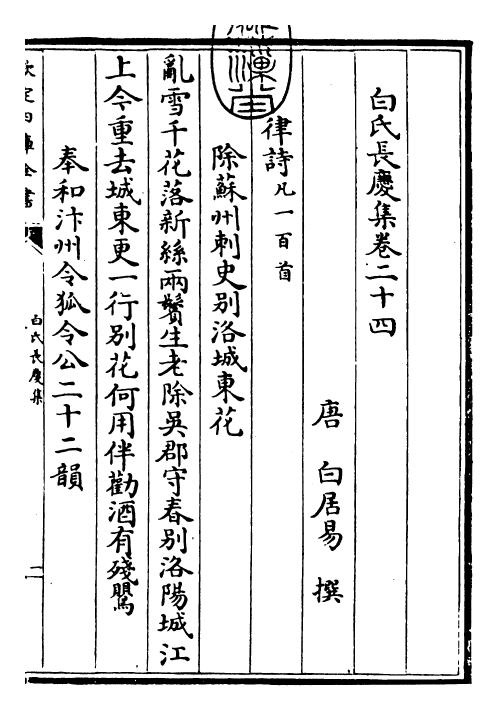 白氏長慶集卷二十四
唐　白居易　撰
律詩凡一百首
除蘇州刺史别洛城東花
亂雪千花落新絲兩鬢生老除吳郡守春别洛陽城江
上今重去城東更一行别花何用伴勸酒有殘鶯
奉和汴州令狐令公二十二韻
欽定四庫全書
白氏長慶集